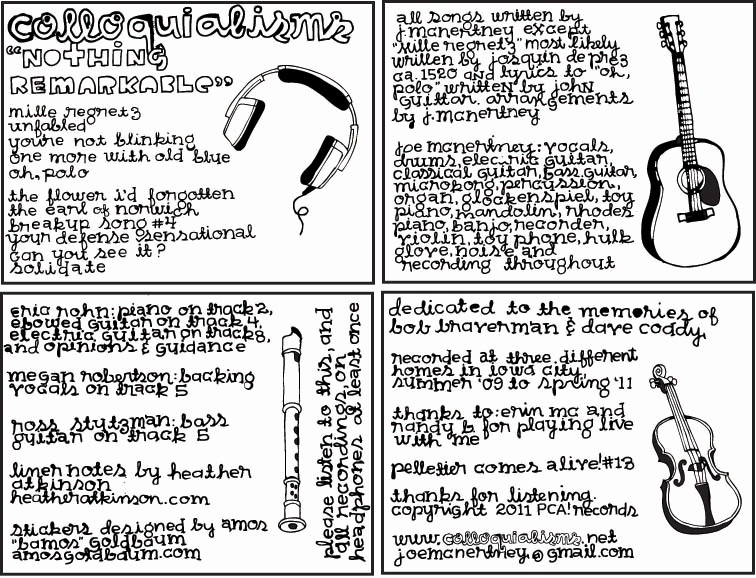 colloquialisms
"NOTHING
REMARKABLE"
mille regretz
unfabled
you're not blinking
one more with old blue
oh, polo
the flower i'd forgotten
the earl of norwich
breakup song #4
your defense sensational
can you see it?
solidate
all songs written by
j.mcnertney except
"mille regretz" most likely
written by josquin de prez
ca. 1520 and lyrics to "oh,
polo" written by john
guittar. arrangements
by j.mcnertney
joe mcnertney: vocals,
drums, electric guitar,
classical guitar, bass guitar,
microkorg, percussion,
organ, glockenspiel, toy
piano, mandolin, rhodes
piano, banjo, recorder,
violin, toy phone, hulk
glove, noise and
recording throughout
eric rohn: piano on track 2,
ebowed guitar on track 4,
electric guitar on track 8,
and opinions & guidance
megan robertson: backing
vocals on track 5
ross stutzman: bass
guitar on track 5
liner notes by heather
atkinson
heatheratkinson.com
stickers designed by amos
"bamos" goldbaum
amosgoldbaum.com
please listen to this, and
all recordings, on
headphones at least once
dedicated to the memories of
bob braverman & dave coady.
recorded at three different
homes in iowa city
summer '09 to spring '11
thanks to: erin mc and
randy b for playing live
with me
pelletier comes alive! #13
thanks for listening.
copyright 2011 PCA! records
www.colloquialisms.net
joemcnertney@gmail.com